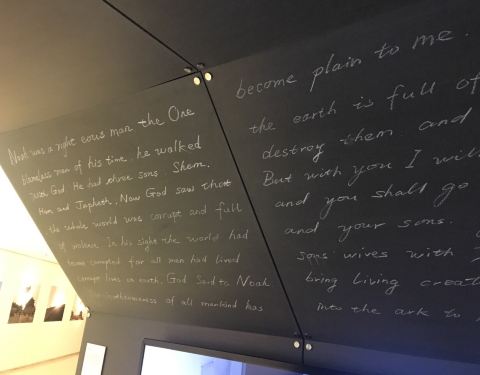 Noah was a right eous man the One
blameless man of his time. he walked
with God. He had three sons. Shem.
Ham and Japheth. Now God saw that
the whole world was corrupt and full
of violence. In his sight the world had
for all men had lived
corrupt lives on earth. God Said to Noah
of all mankind has
become plain to me.
the earth is full of
destroy them. and
But with you I will
and you shall go
and your sons.
sons' wives with
bring living creat
into the ark to